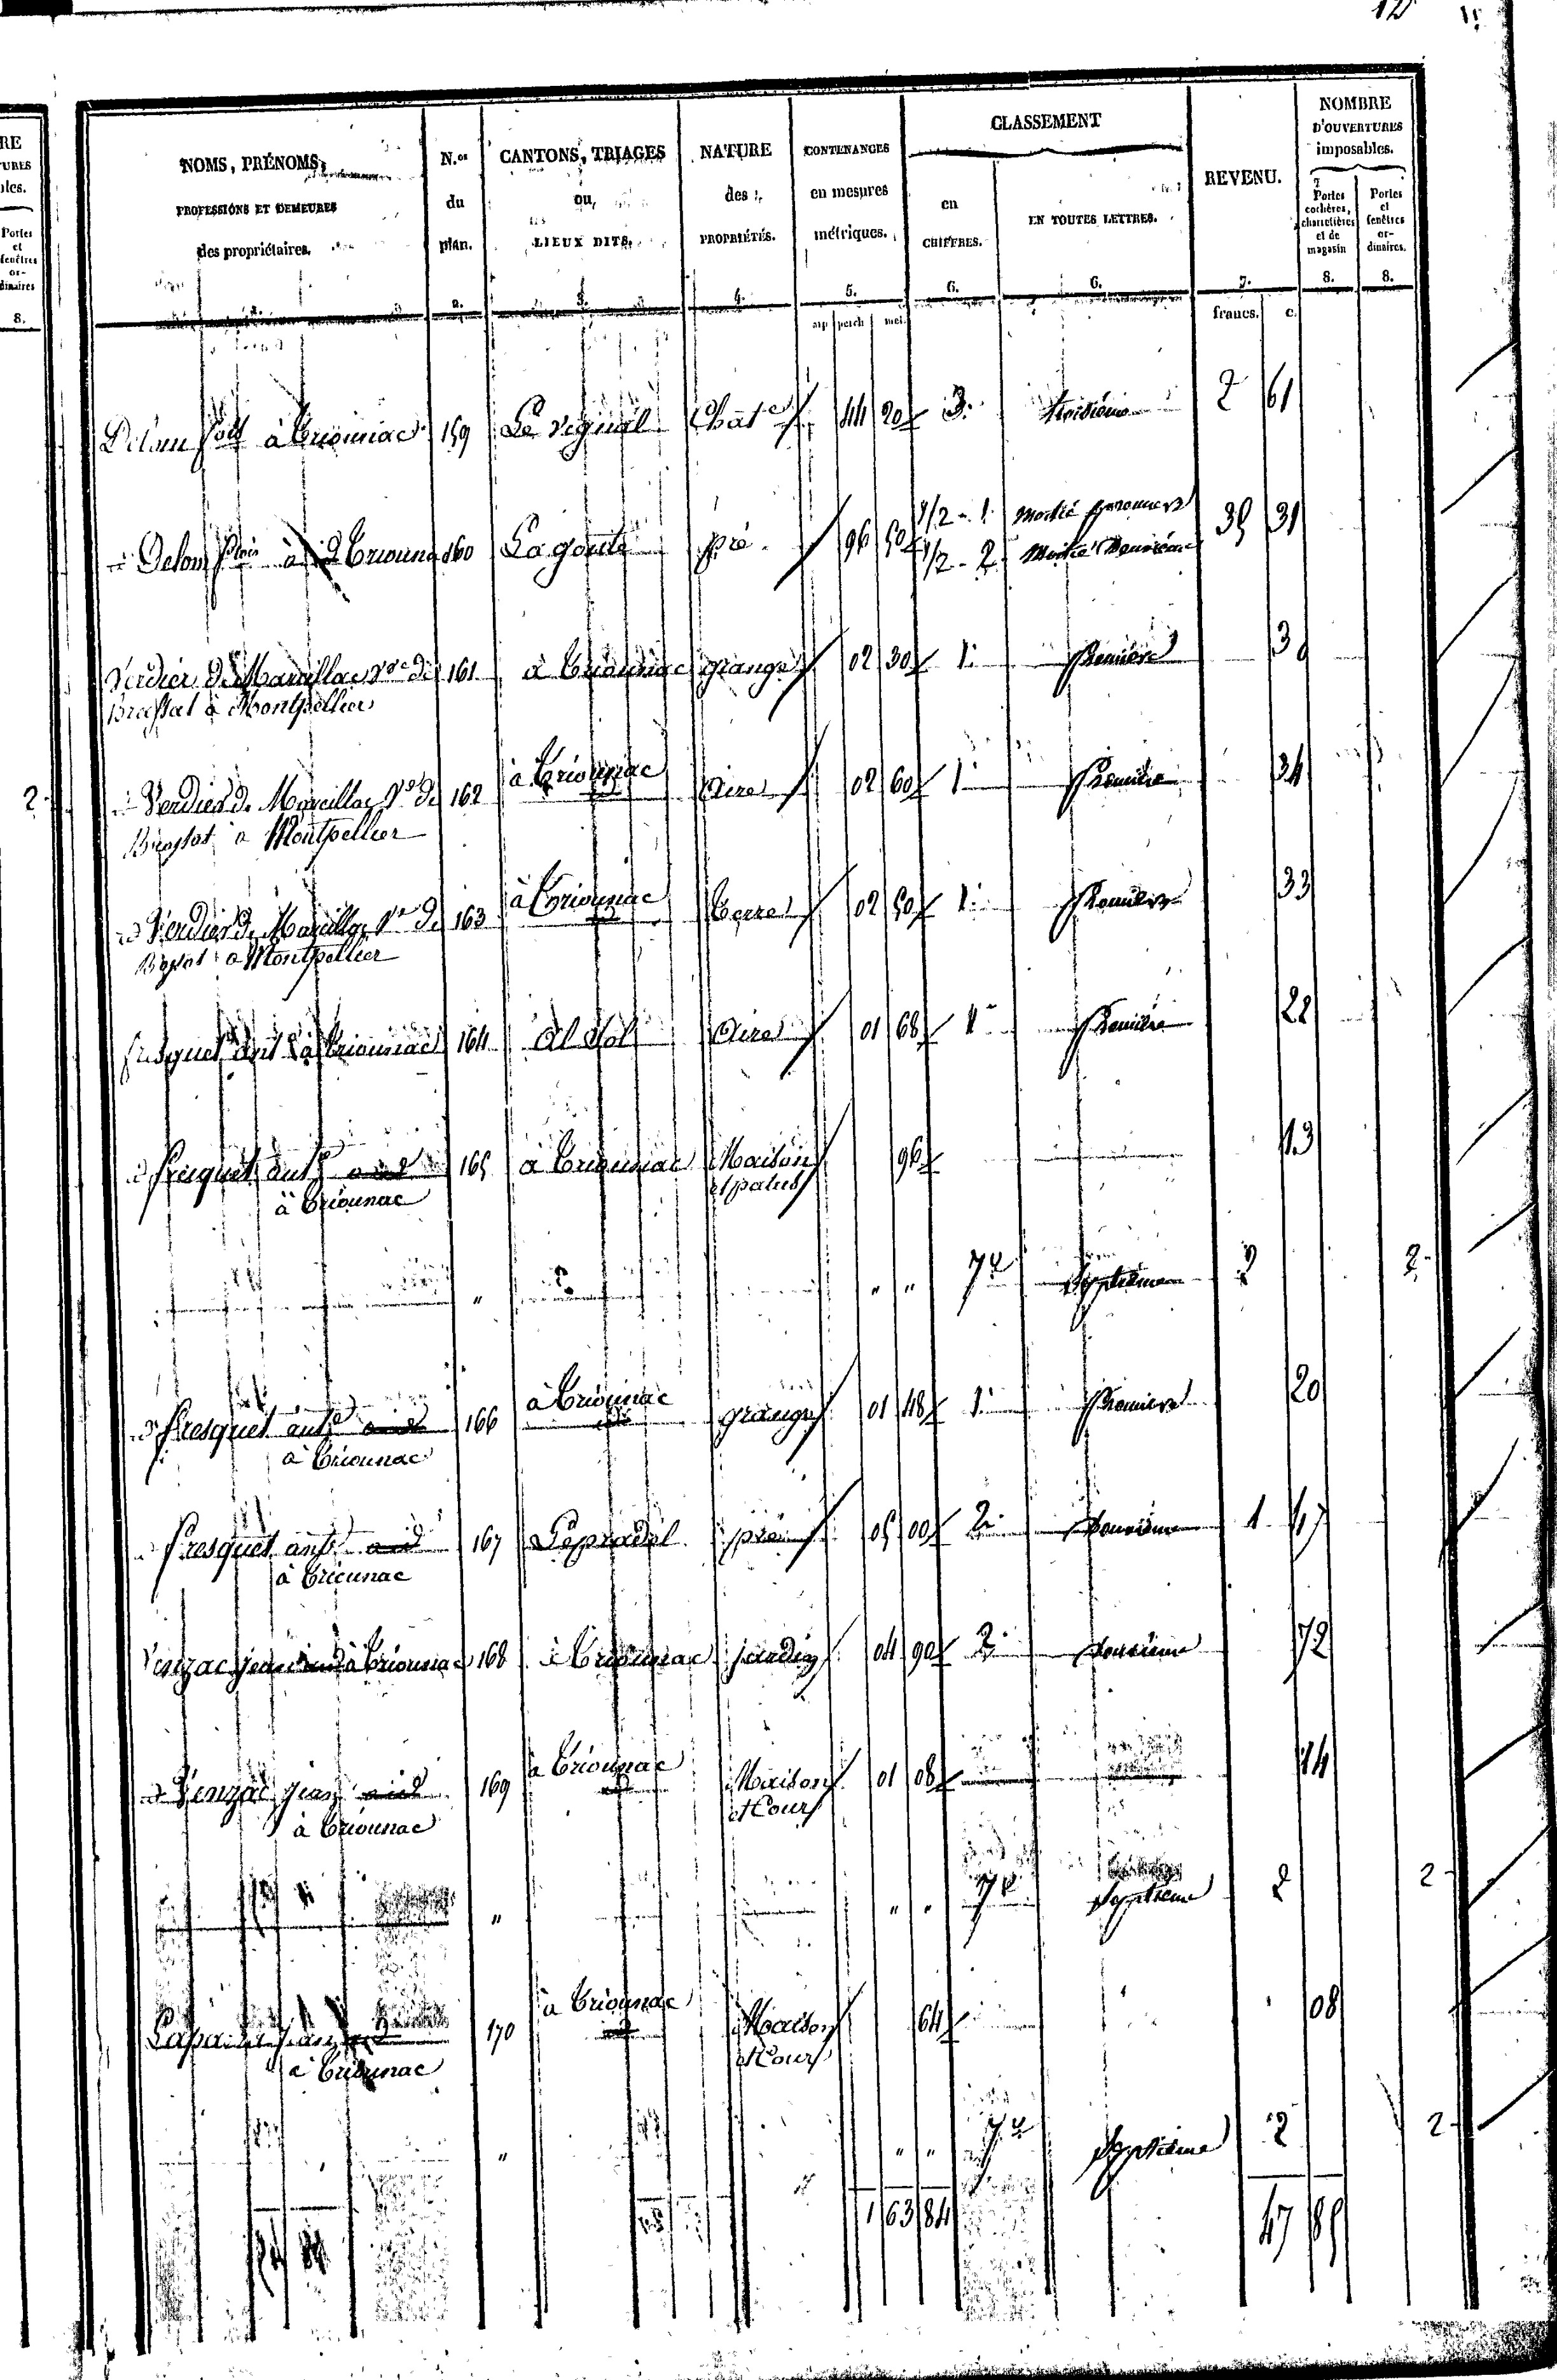 12
NOMS, PRÉNOMS,
PROFESSIONS ET DEMEURES
des propriétaires.
N.os
du
plan.
CANTONS, TRIAGES
ou
LIEUX DITS.
NATURE
des
PROPRIÉTÉS.
CONTENANCES
en mesures
métriques.
CLASSEMENT
en
CHIFFRES.
EN TOUTES LETTRES.
REVENU.
NOMBRE
D'OUVERTURES
imposables.
Portes
cochères,
charretières
et de
magasin
Portes
et
fenêtres
or-
dinaires.
1. 2. 3. 4. 5. 6. 6. 7. 8. 8.
arp perch met. francs. c.
Delom à Triounac 159 Le vignal Chat 44 20 3. troisième 2 61
Delom à Triouna 160 La goute pré 96 50 1/2 - 1 Moitié première 35 31
1/2 - 2 Moitié Deuxième
Verdier de Marcillac Ve de 161 à Triounac grange 02 30 1. Première 30
Brassat à Montpellier
Verdier de Marcillac Ve de 162 à Triounac Aire 02 60 1 Première 34
Brassat à Montpellier
Verdier de Marcillac Ve de 163 à Triounac terre 02 50 1. Première 33
Brassat à Montpellier
fresquet ant à Triounac 164 Al Sol Aire 01 68 1 Première 22
fresquet ant 165 à Triounac Maison 96 13
à Triounac et patus
" " " 7e Septième 2 2
fresquet ant 166 à Triounac grange 01 48 1. Première 20
à Triounac
fresquet ant 167 Le pradel pré 05 00 2. Deuxième 1 47
à Triounac
Venzac jean à Triounac 168 à Triounac jardin 04 90 2. Deuxième 72
Venzac jean 169 à Triounac Maison 01 08 14
à Triounac et Cour
" " " 7e Septième 2 2
jean 170 à Triounac Maison 64 08
à Triounac et Cour
" " " 7e Septième 2 2
1 63 84 47 85